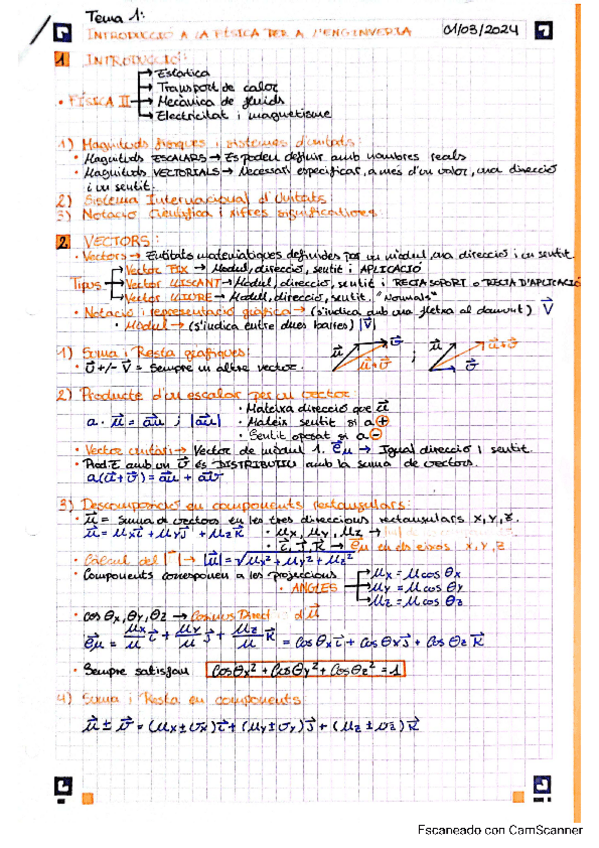 Tema 1:
INTRODUCCIÓ A LA FÍSICA PER A L'ENGINYERIA 01/03/2024
1 INTRODUCCIÓ:
Estàtica
Transport de calor
• FÍSICA II → Mecànica de fluids
Electricitat i magnetisme
1) Magnituds físiques i sistemes d'unitats:
• Magnituds ESCALARS → Es poden definir amb nombres reals
• Magnituds VECTORIALS → Necessari especificar, a més d'un valor, una direcció
i un sentit.
2) Sistema Internacional d'Unitats
3) Notació Científica i xifres significatives
2 VECTORS:
• Vectors → Entitats matemàtiques definides per un mòdul, una direcció i un sentit
Vector FIX → Modul, direcció, sentit i APLICACIÓ
Tipus → Vector LLISCANT → Modul, direcció, sentit i RECTA SUPORT o RECTA D'APLICACIÓ
Vector LLIURE → Modul, direcció, sentit. "Normals"
• Notació i representació gràfica → (s'indica amb una fletxa al damunt) V⃗
• Mòdul → (s'indica entre dues barres) |V⃗|
1) Suma i Resta gràfiques:
• U⃗ +/- V⃗ = Sempre un altre vector.
u⃗ v⃗ u⃗+v⃗ ; u⃗ u⃗-v⃗ v⃗
2) Producte d'un escalar per un vector
• Mateixa direcció que u⃗
a · u⃗ = au⃗ ; |au⃗| • Mateix sentit si a +
• Sentit oposat si a -
• Vector unitari → Vector de mòdul 1. e⃗u → Igual direcció i sentit.
• Prod.E amb un v⃗ és DISTRIBUTIU amb la suma de vectors.
a(u⃗+v⃗) = au⃗ + av⃗
3) Descomposició en components rectangulars:
• u⃗ = Suma de vectors en les tres direccions rectangulars x, y, z.
u⃗ = ux i⃗ + uy j⃗ + uz k⃗ • ux, uy, uz →
• i⃗, j⃗, k⃗ → e⃗u en els eixos x, y, z
• Càlcul del | | → |u⃗| = √(ux² + uy² + uz²)
• Components corresponen a les projeccions ux = u cos θx
• ANGLES → uy = u cos θy
uz = u cos θz
• cos θx, θy, θz → Cosinus Direct d'u⃗
e⃗u = ux/u i⃗ + uy/u j⃗ + uz/u k⃗ = cos θx i⃗ + cos θy j⃗ + cos θz k⃗
• Sempre satisfan cos θx² + cos θy² + cos θz² = 1
4) Suma i Resta en components:
u⃗ ± v⃗ = (ux ± vx) i⃗ + (uy ± vy) j⃗ + (uz ± vz) k⃗
Escaneado con CamScanner